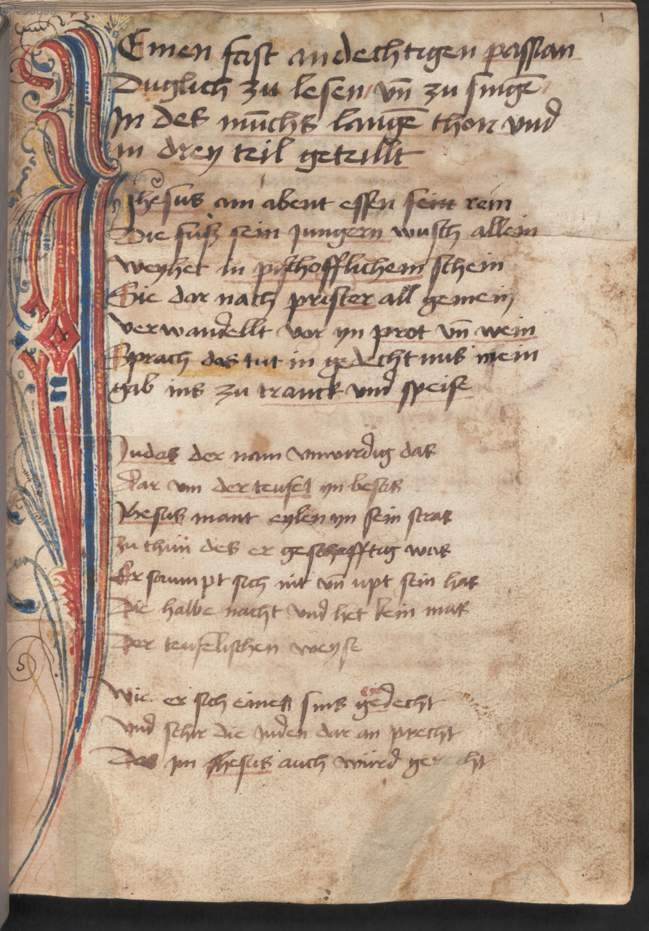 1
Einen fast andechtigen passian
Duglich zu lesen vn̄ zu singē
In des mūchs langē thon vnd
in drey teil geteillt
Jhesus am abent essen seit rein
Die füsz sein jungern wusch allein
weyhet in pischofflichem schein
Sie dar nach prister all gemein
verwandellt vor yn prot vn̄ wein
Sprach das tut in gedechtnus mein
gab ins zu tranck vnd speise
Judas der nam vnwirdig das
dar vm der teufel yn besas
Jhesus mant eylen yn sein stras
zu thun des er geschefftig was
Er saumpt sich nit vn̄ upt sein has
Die halbe nacht vnd het kein mas
Der teufelischen weyse
Wie er sich eines sins gedecht
vnd sehr die Juden dar an precht
Das jn Jhesus auch würd
5